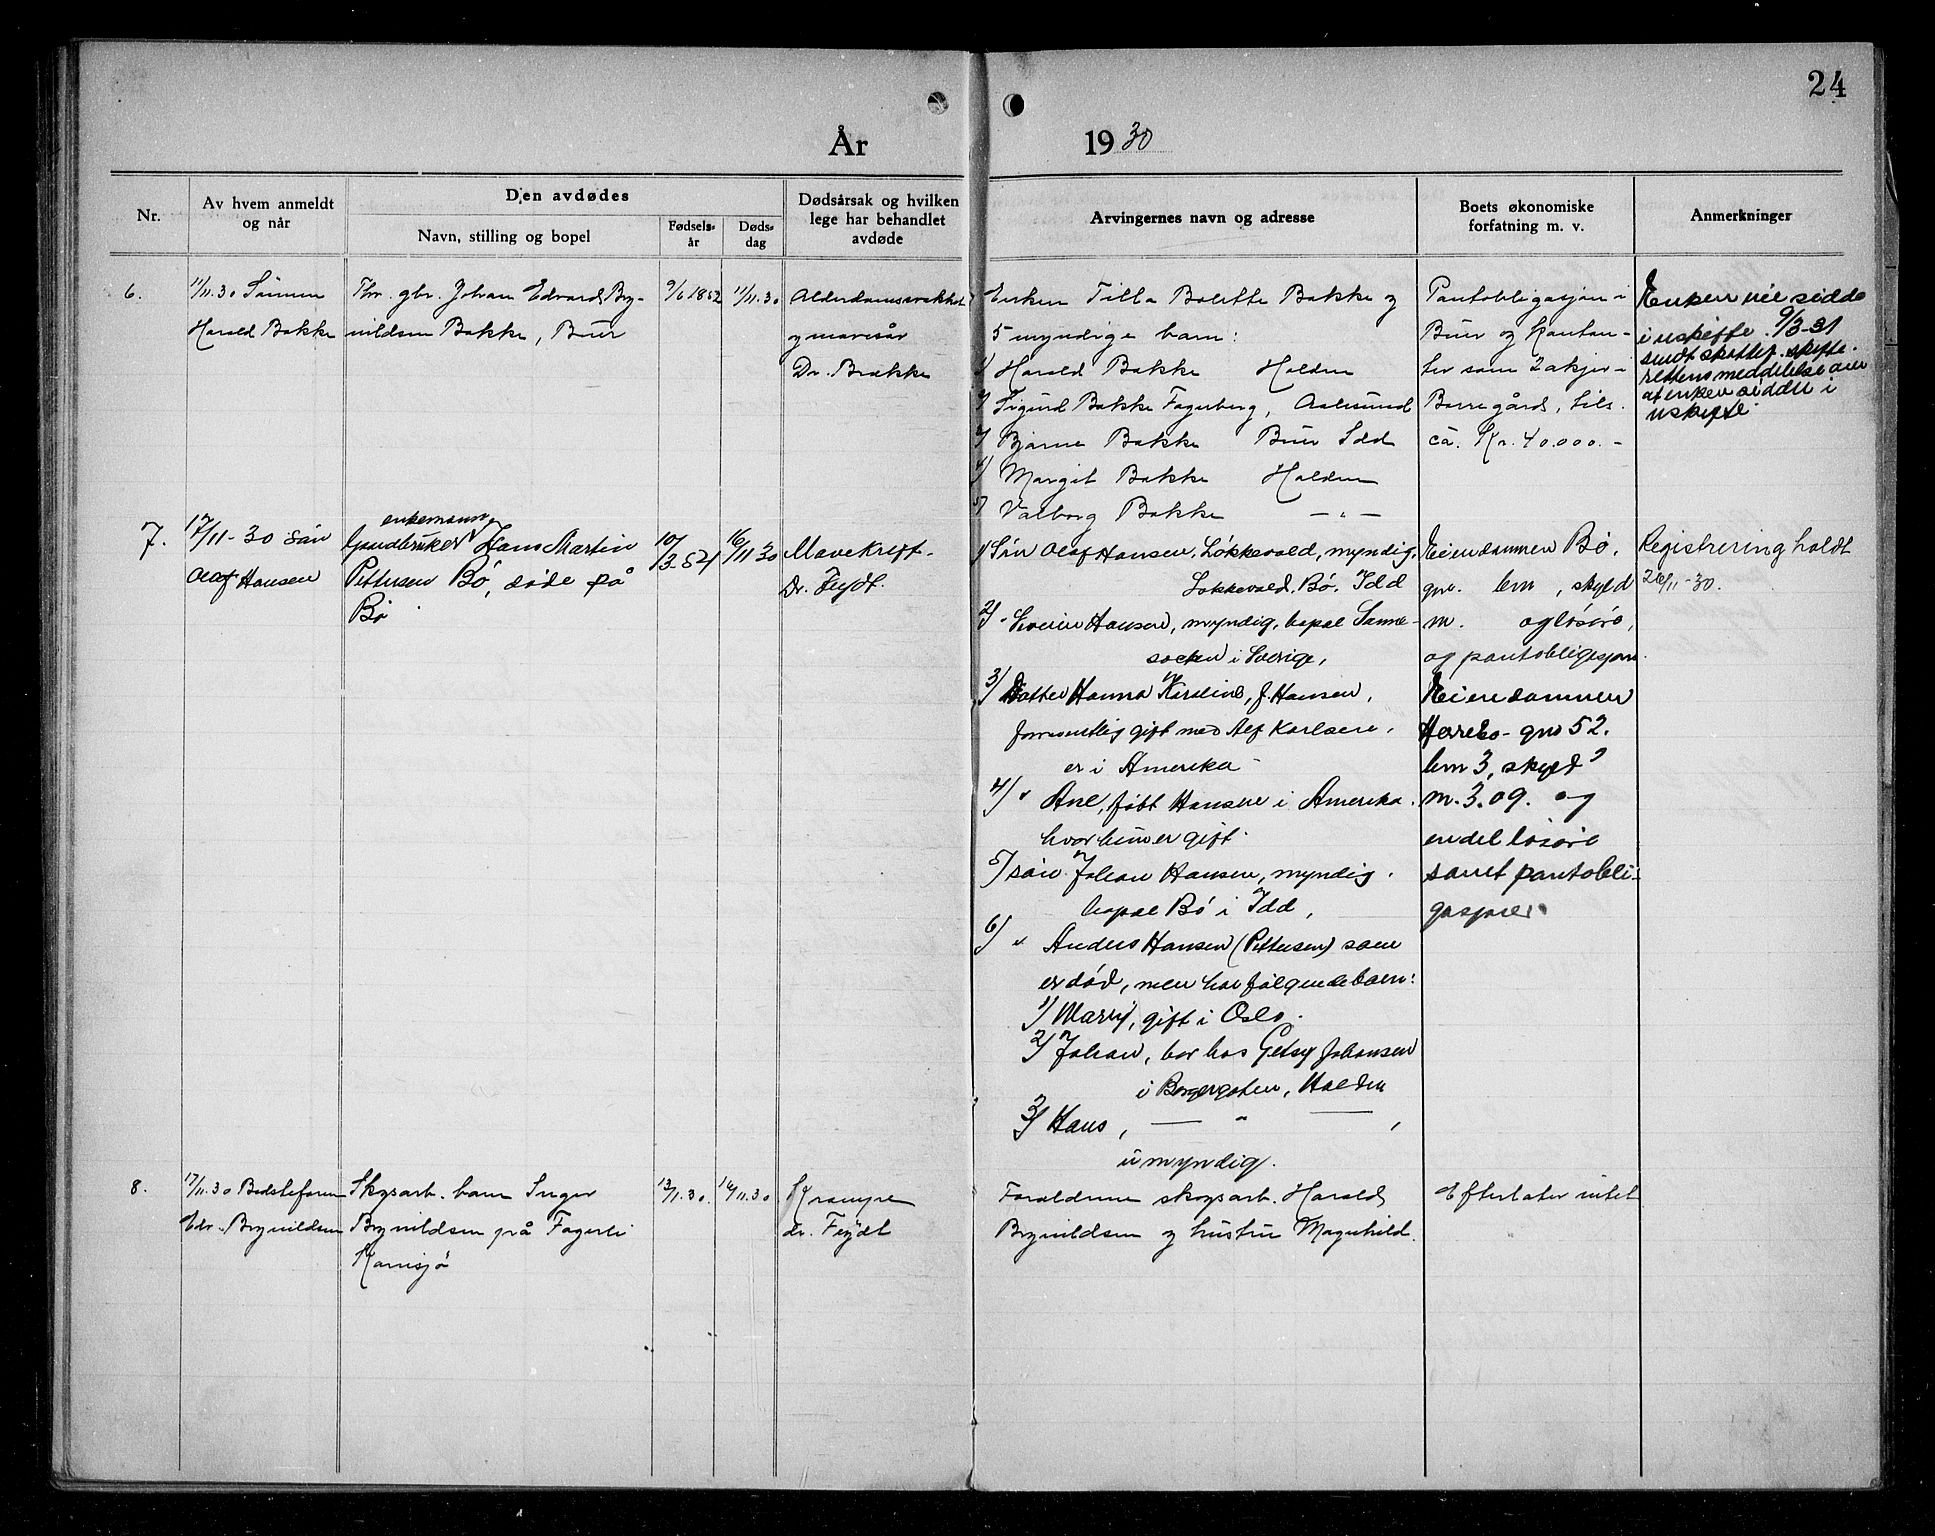 24
År 1930
Nr.
Av hvem anmeldt
og når
Den avdødes
Navn, stilling og bopel
Fødsels-
år
Døds-
dag
Dødsårsak og hvilken
lege har behandlet
avdøde
Arvingernes navn og adresse
Boets økonomiske
forfatning m. v.
Anmerkninger
6.
11/11.30 Sønnen
Harald Bakke
Fhv. gbr. Johan Edvard Bry-
nildsen Bakke, Buer
9/6 1852
11/11.30
Alderdomssvakhet
og mavesår
Dr. Brække
Enken Tilla Bolette Bakke og
5 myndige barn:
1/ Harald Bakke Halden
2/ Sigurd Bakke Fagerberg, Aalesund
3/ Bjarne Bakke Buer Idd
4/ Margit Bakke Halden
5/ Valborg Bakke — " —
Pantobligasjon i
Buer og kontan-
ter samt 2 aksjer i
Borregård, tils.
ca. Kr. 40.000.-
Enken vil sidde
i uskifte. 9/3-31
sendt skattef. skifte-
rettens meddelelse om
at enken sidder i
uskifte
7.
17/11-30 søn
Olaf Hansen
enkemann
Gardbruker Hans Martin
Pettersen Bø, døde på
Bø
10/3.54
16/11 30
Mavekreft.
Dr. Feydt.
1/ Søn Olaf Hansen, Løkkevold, myndig,
Løkkevold, Bø, Idd
2/ " Severin Hansen, myndig, bopæl Sanne-
socken i Sverige,
3/ Datter Hanna Karoline, f. Hansen,
formentlig gift med Alf Karlsen,
er i Amerika
4/ " Ane, født Hansen i Amerika.
hvor hun er gift.
5/ søn Johan Hansen, myndig.
bopæl Bø i Idd,
6/ " Anders Hansen (Pettersen) som
er død, men har følgende barn:
1/ Marry, gift i Oslo.
2/ Johan, bor hos Getsy Johansen
i Borgergaten, Halden
3/ Hans, — " — ,
umyndig.
Eiendommen Bø,
gno. bno , skyld
m. og løsøre,
og pantobligasjon.
Eiendommen
Herrebø - gno 52.
bno 3, skyld
m. 3.09. og
endel løsøre
samt pantobli-
gasjoner
Registrering holdt
26/11-30.
8.
17/11.30 Bedstefaren
Edv. Brynildsen
Skogsarb. barn Inger
Brynildsen på Fagerli
Kornsjø
13/1.30.
16/11.30
Krampe
dr. Feydt
Foreldrene skogsarb. Harald
Brynildsen og hustru Magnhild.
Efterlater intet